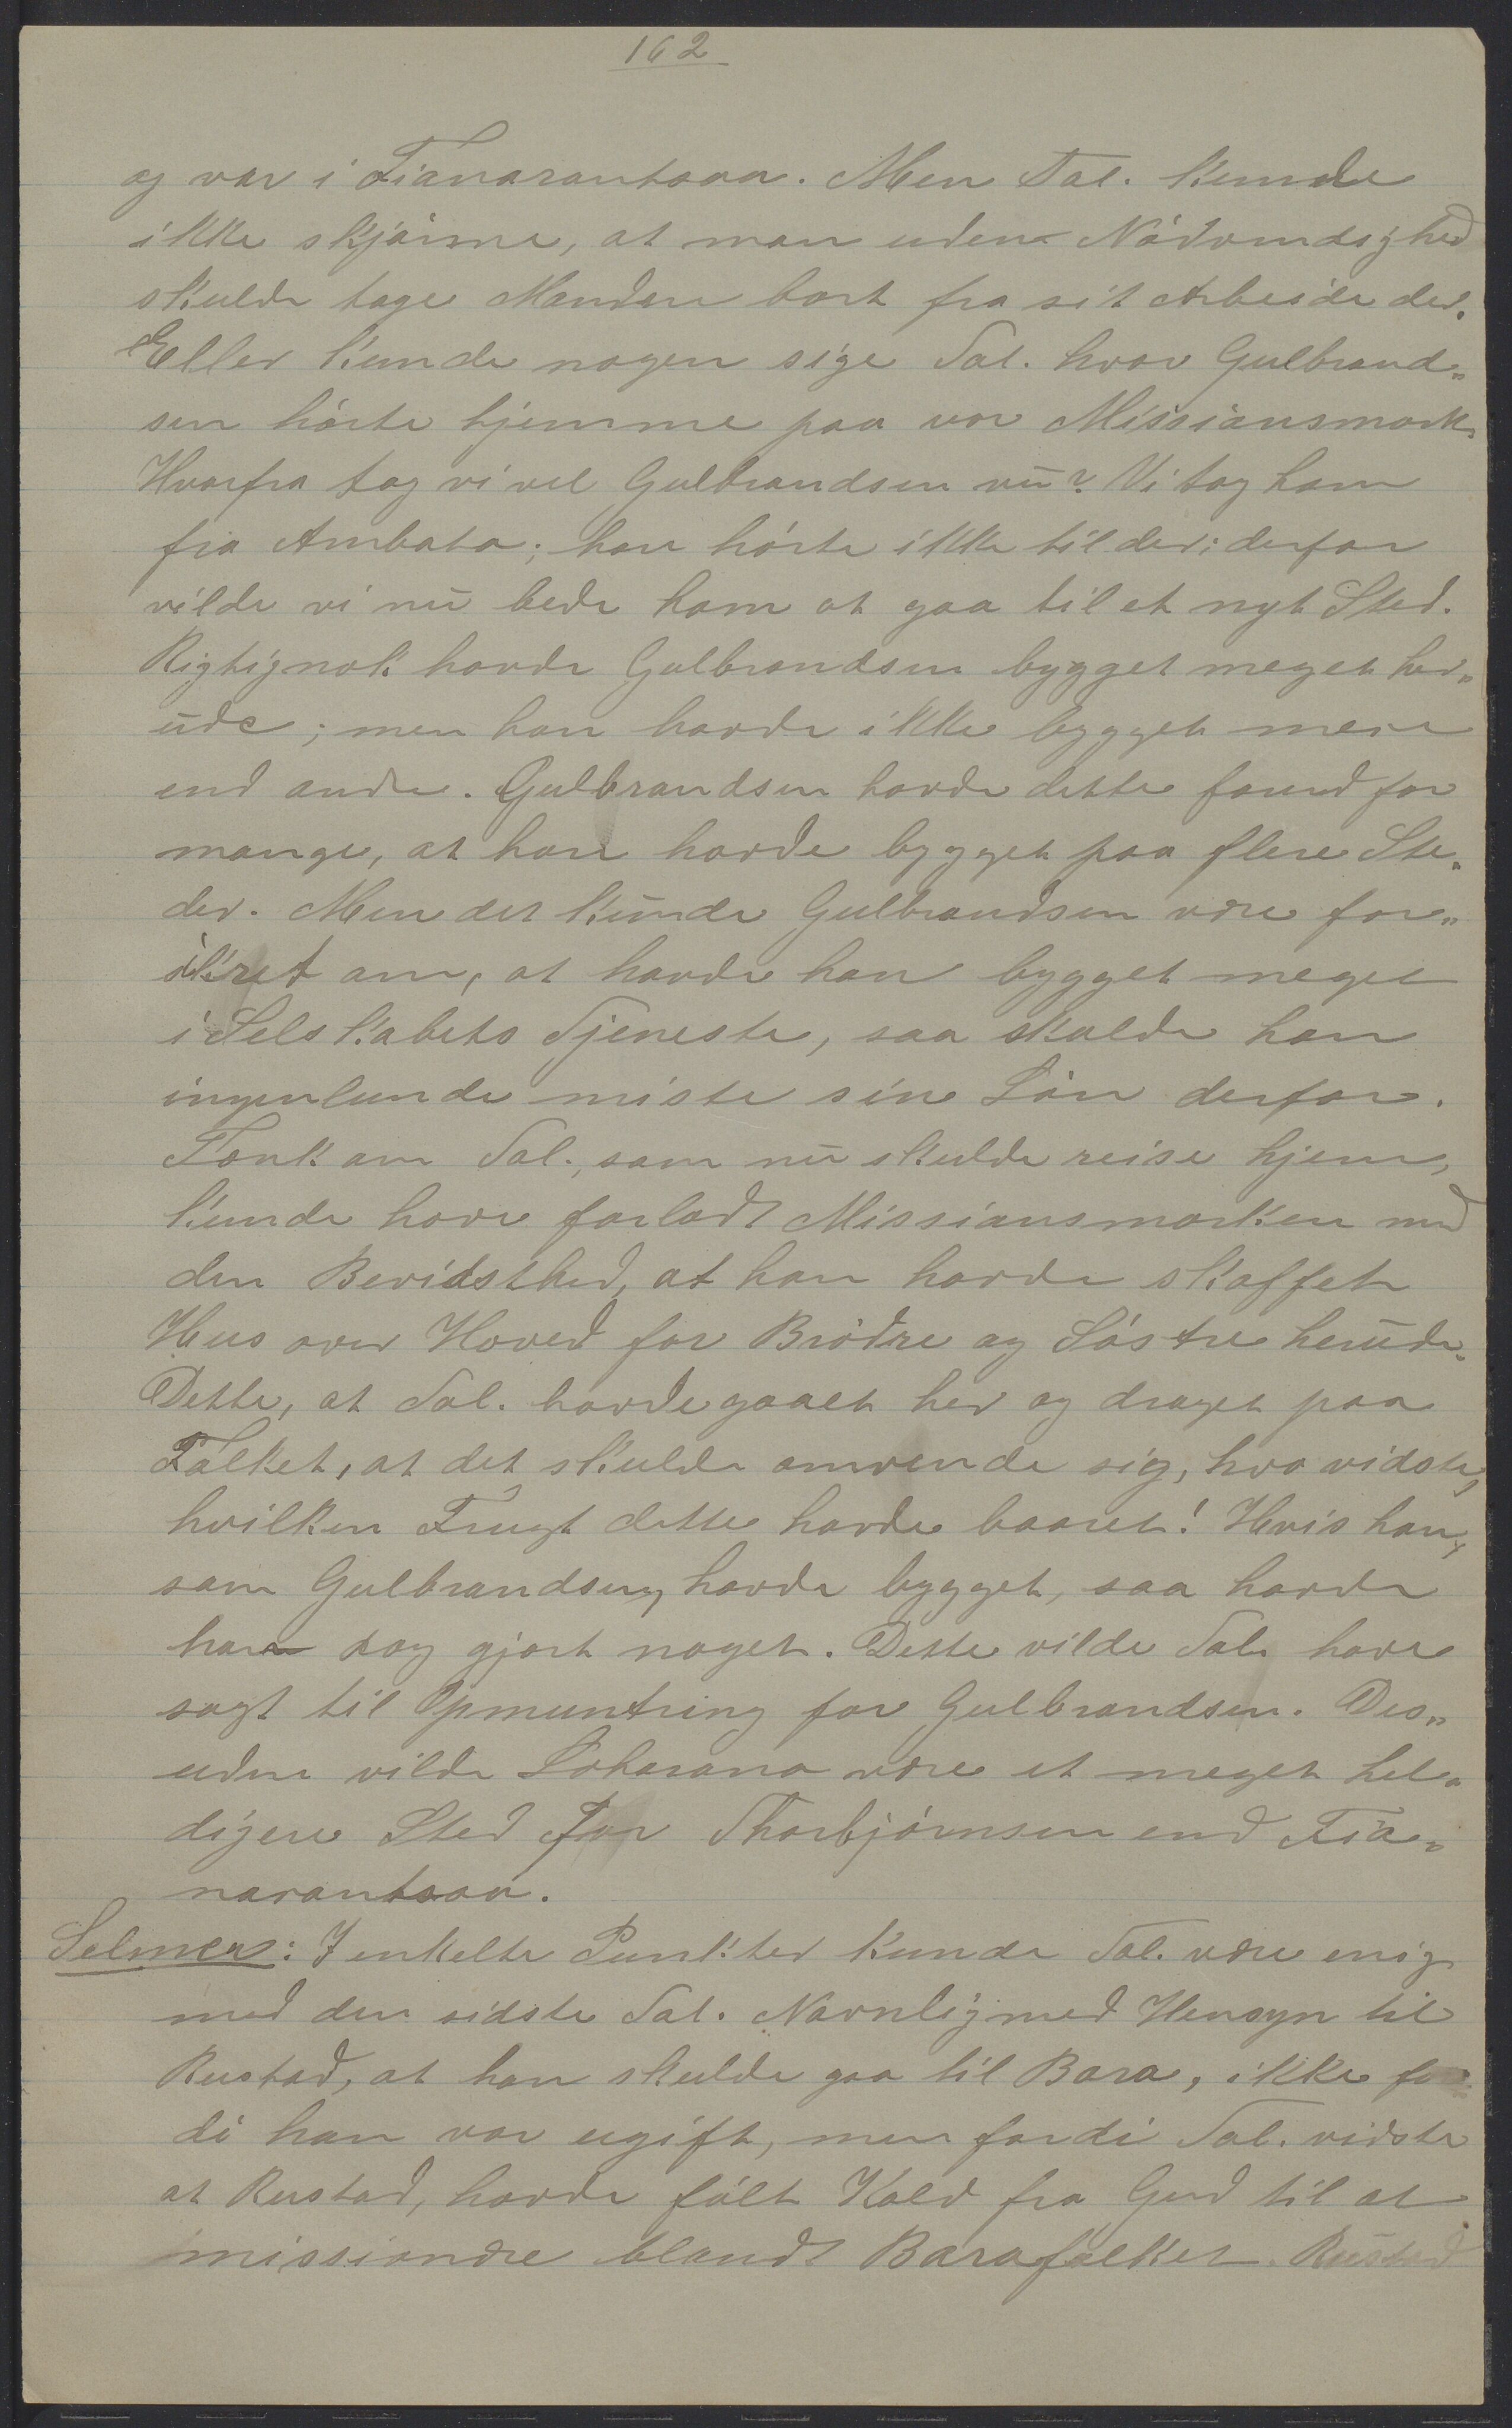 162
og var i Fianarantsoa. Men Tal. kunde
ikke skjönne, at man uden Nödvendighed
skulde tage Manden bort fra sit Arbeide der.
Eller kunde nogen sige Tal. hvor Gulbrand„
sen hörte hjemme paa vor Missionsmark.
Hvorfra tog vi vel Gulbrandsen nu? Vi tog ham
fra Ambato; han hörte ikke til der; derfor
vilde vi nu bede ham at gaa til et nyt Sted.
Rigtignok havde Gulbrandsen bygget meget her„
ude; men han havde ikke bygget mere
end andre. Gulbrandsen havde dette forud for
mange, at han havde bygget paa flere Ste„
der. Men det kunde Gulbrandsen være for„
sikret om, at havde han bygget meget
i Selskabets Tjeneste, saa skulde han
ingenlunde miste sin Lön derfor.
Tænk om Tal., som nu skulde reise hjem,
kunde have forladt Missionsmarken med
den Bevidsthed, at han havde skaffet
Hus over Hoved for Brödre og Söstre herude.
Dette, at Tal. havde gaaet her og draget paa
Folket, at det skulde omvende sig, hvo vidste,
hvilken Frugt dette havde baaret! Hvis han,
som Gulbrandsen, havde bygget, saa havde
han dog gjort noget. Dette vilde Tal. have
sagt til Opmuntring for Gulbrandsen. Des„
uden vilde Soharano være et meget hel„
digere Sted for Thorbjörnsen end Fia„
narantsoa.
Selmer: I enkelte Punkter kunde Tal. være enig
med den sidste Tal. Navnlig med Hensyn til
Rustad, at han skulde gaa til Bara, ikke for
di han var ugift, men fordi Tal. vidste
at Rustad, havde fölt Kald fra Gud til at
missionere blandt Barafolket. Rustad